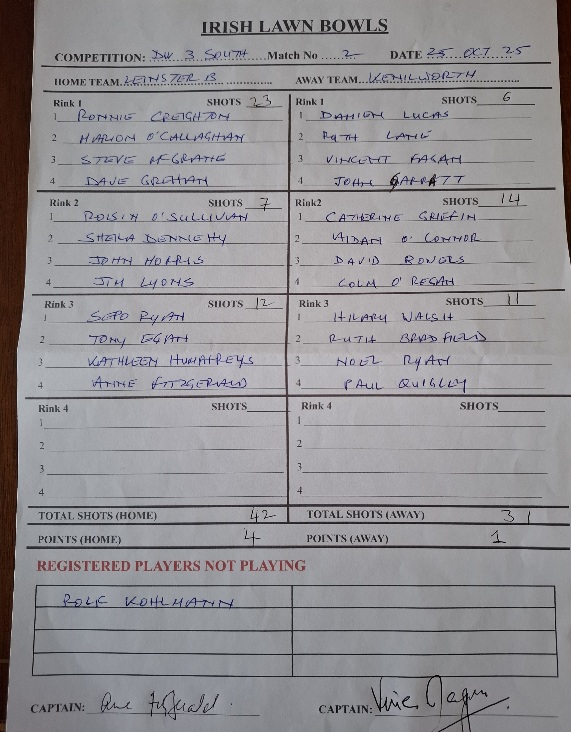 IRISH LAWN BOWLS
COMPETITION: DW 3 SOUTH Match No 2 DATE 25 OCT 25
HOME TEAM LEINSTER B AWAY TEAM KENILWORTH
Rink 1 SHOTS 23 Rink 1 SHOTS 6
1 RONNIE CREIGHTON 1 DAMIEN LUCAS
2 MARION O'CALLAGHAN 2 RUTH LANE
3 STEVE McGRANE 3 VINCENT FAGAN
4 DAVE GREHAN 4 JOHN GARRATT
Rink 2 SHOTS 7 Rink2 SHOTS 14
1 ROISIN O'SULLIVAN 1 CATHERINE GRIFFIN
2 SHEILA DENNEHY 2 AIDAN O'CONNOR
3 JOHN MORRIS 3 DAVID ROWERS
4 JIM LYONS 4 COLM O'REGAN
Rink 3 SHOTS 12 Rink 3 SHOTS 11
1 RYAN 1 HILARY WALSH
2 TONY EGAN 2 RUTH BRADFIELD
3 KATHLEEN HUMPHREYS 3 NOEL RYAN
4 ANNE FITZGERALD 4 PAUL QUIGLEY
Rink 4 SHOTS Rink 4 SHOTS
1 1
2 2
3 3
4 4
TOTAL SHOTS (HOME) 42 TOTAL SHOTS (AWAY) 31
POINTS (HOME) 4 POINTS (AWAY) 1
REGISTERED PLAYERS NOT PLAYING
ROLF KOHLMANN
CAPTAIN: Anne Fitzgerald CAPTAIN: